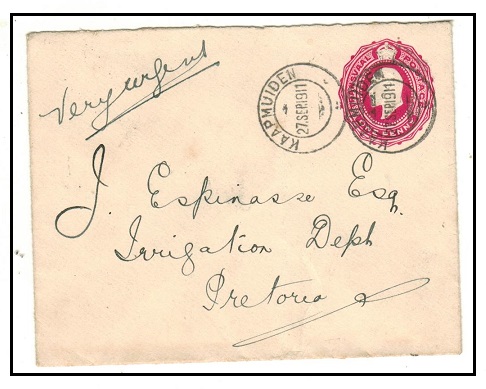 Very urgent
KAAPMUIDEN
27.SEP.1911
TRANSVAAL POSTAGE
ONE PENNY
J. Espinasse Esq.
Irrigation Dept
Pretoria